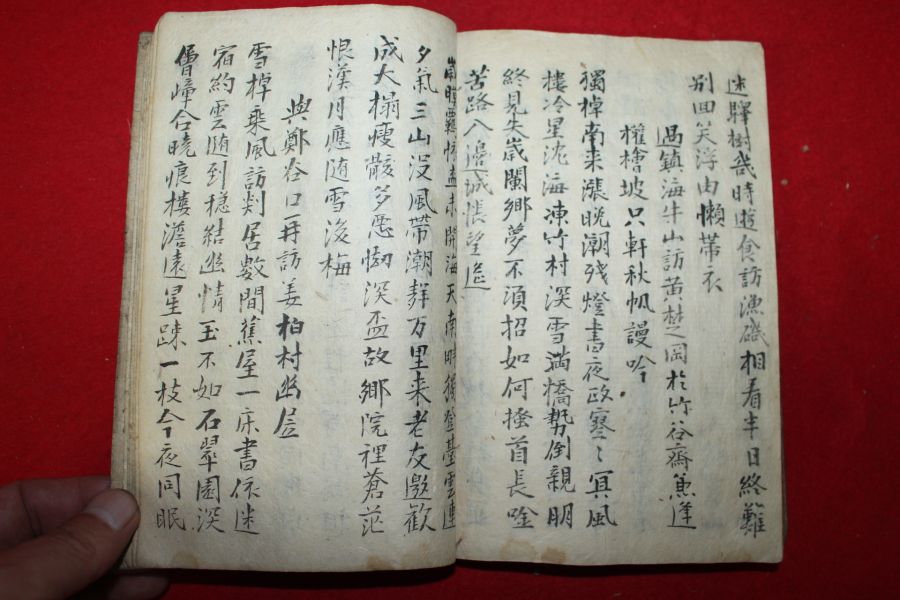 迷驛樹幾時逰食訪漁磯相看半日終難
別回笑浮由懶帶衣
過鎮海牛山訪黃楚岡於竹谷齋兼逢
權檜坡只軒秋帆謾吟
獨棹南来漲晩潮残燈書夜政寥〻寅風
樓冷星沈海凍竹村深雪滿橋勢倒親朋
終見失歲闌鄉夢不湏招如何搔首長唫
苦路入邊城悵望遙
歲暗 未開海天南 獨登臺雲連
夕氣三山没風帶潮群万里来老友邀歡
成大榻瘦骸多惡㤼深盃故鄉院裡蒼茫
恨漢月應随雪後梅
與鄭谷口再訪姜栢村幽居
雪棹乘風訪剡居數間蕉屋一床書依迷
宿約雲随到穏結幽情玉不如石翠園深
層嶂合曉痕樓澹遠星踈一枝今夜同眠